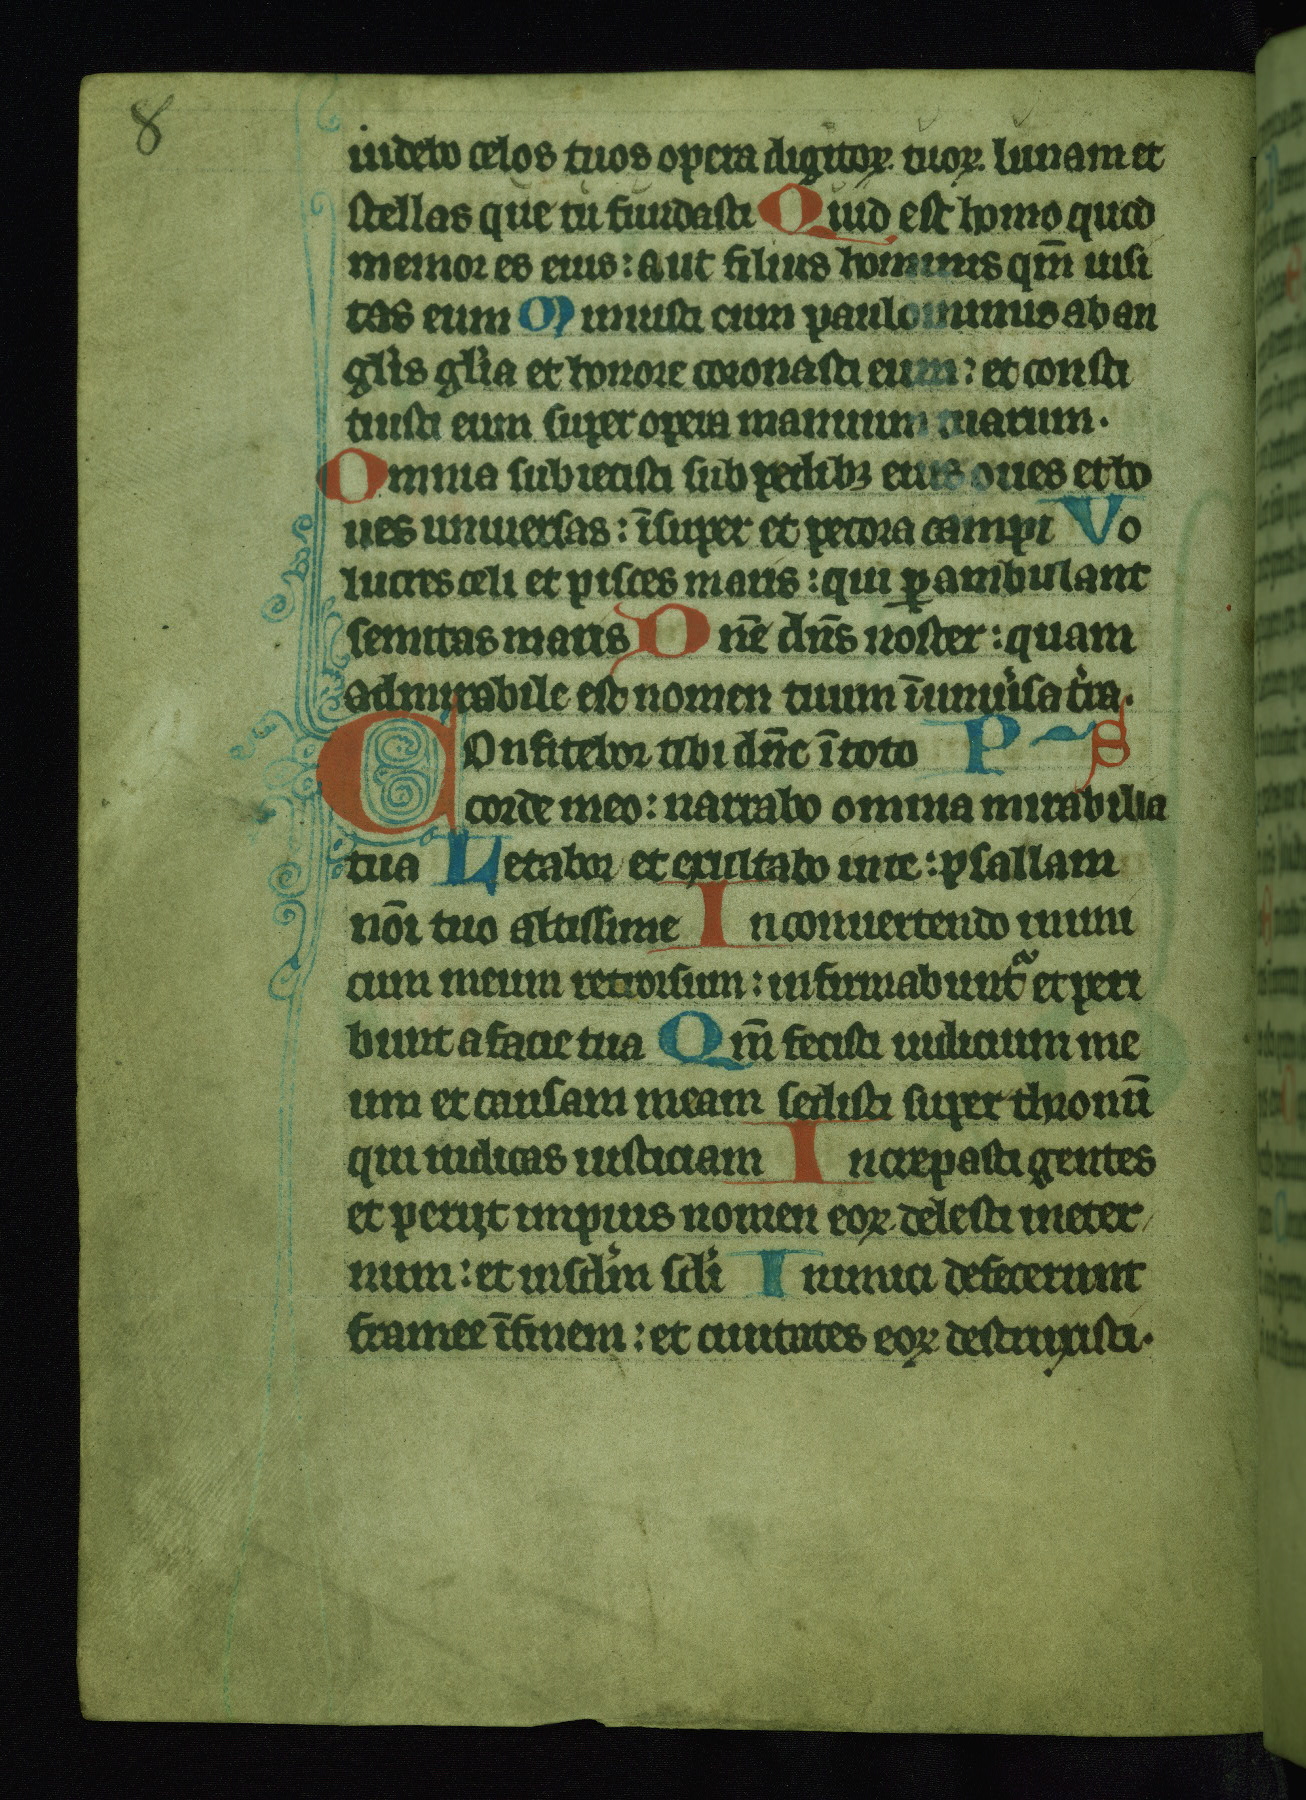 8
uidebo celos tuos opera digitoꝝ. tuoꝝ. lunam et
stellas que tu fundasti Quid est homo quod
memor es eius: aut filius hominis qm̄ uisi
tas eum Minuisti eum paulominus ab an
glis glia et honore coronasti eum: et consti
tuisti eum super opera manuum tuarum.
Omnia subiecisti sub pedibꝫ eius oues et bo
ues uniuersas: īsuper et pecora campi Vo
lucres celi et pisces maris: qui ꝑambulant
semitas maris Dne dn̄s noster: quam
admirabile est nomen tuum ī uniu̓sa tr̓a.
Confitebor tibi dn̄e ī toto P S
corde meo: narrabo omnia mirabilia
tua Letabor et exultabo in te: psallam
nōi tuo altissime In conuertendo inimi
cum meum retrorsum: infirmabunt̃ et peri
bunt a facie tua Qm̄ fecisti iudicium me
um et causam meam sedisti super thronū
qui iudicas iusticiam Increpasti gentes
et periit impius nomen eoꝝ delesti in eter
num: et in sclm̓ scli̓ Inimici defecerunt
framee ī finem: et ciuitates eoꝝ destruxisti.